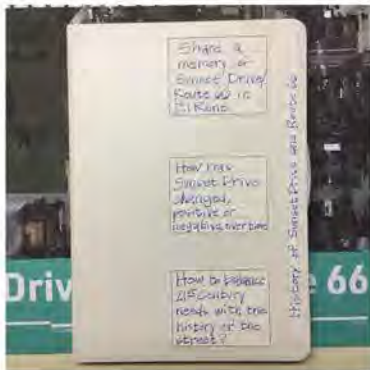 Share a
memory of
Sunset Drive/
Route 66 in
El Reno.
How has
Sunset Drive
changed,
positive or
negative, over time
How to balance
21st Century
needs with the
history of the
street?
History of Sunset Drive and Route 66
Driv
66